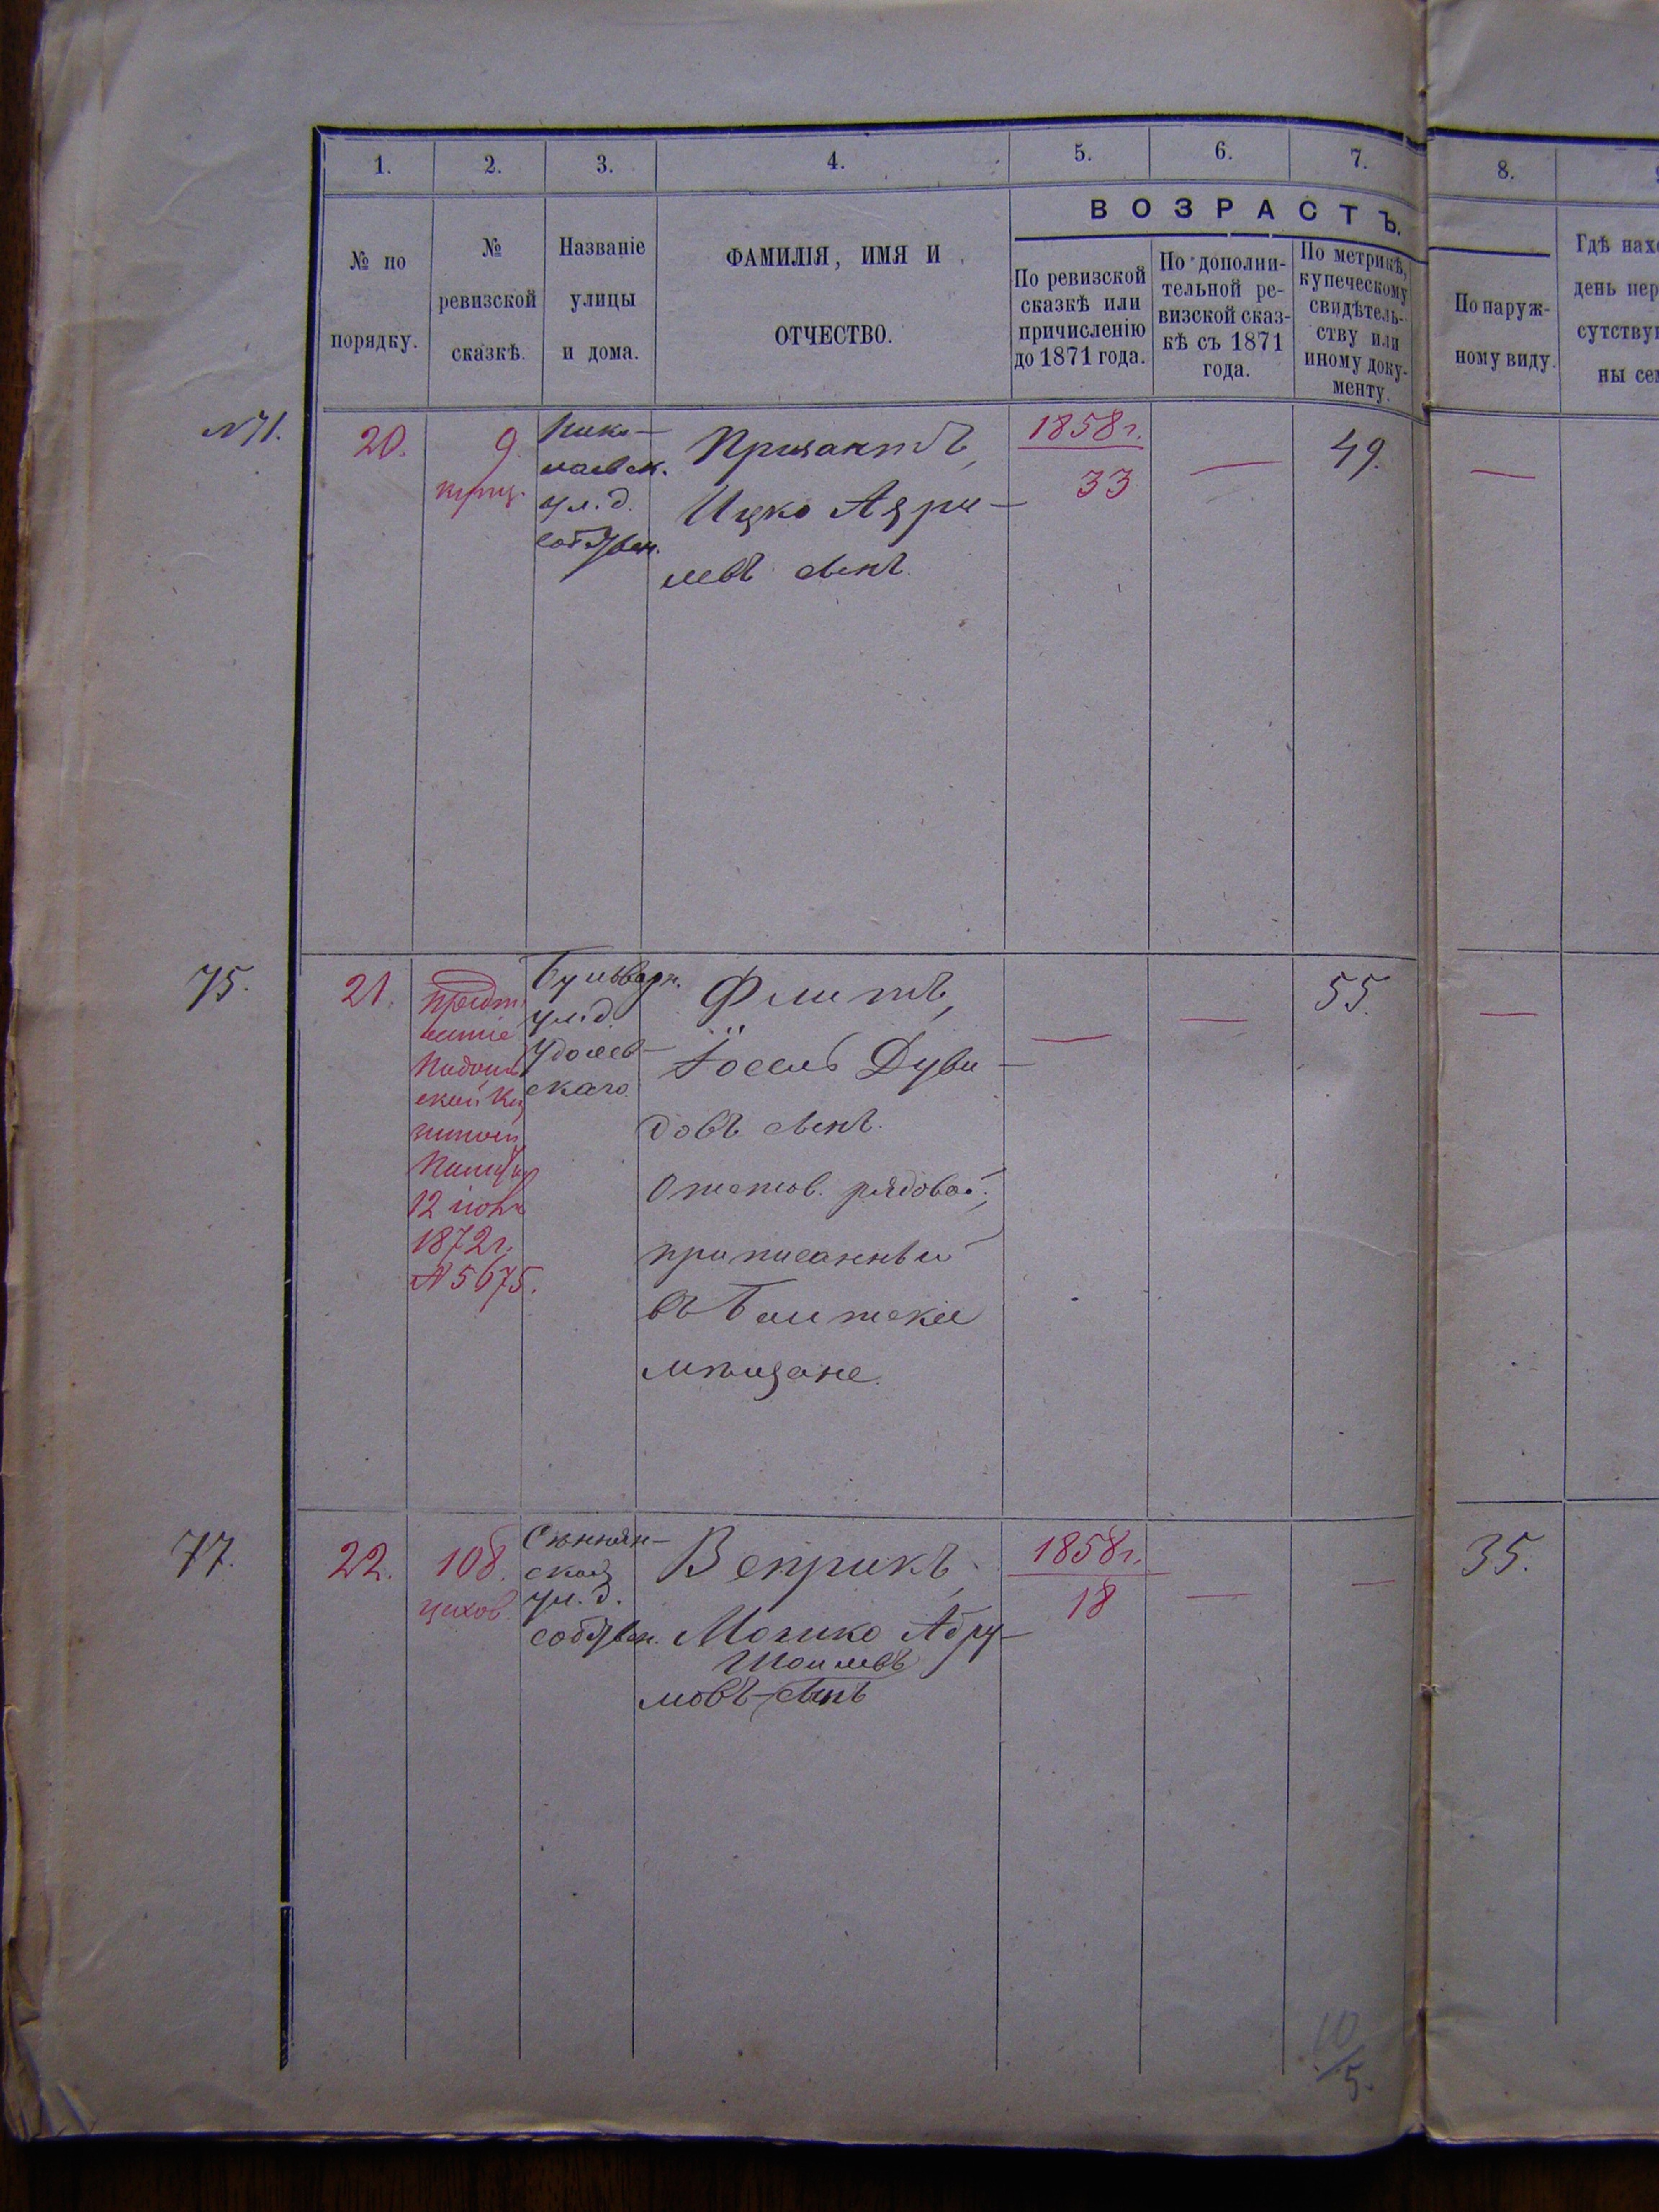 1. 2. 3. 4. 5. 6. 7. 8.
ВОЗРАСТЪ.
№ по
порядку.
№
ревизской
сказкѣ.
Названіе
улицы
и дома.
ФАМИЛІЯ, ИМЯ И
ОТЧЕСТВО.
По ревизской
сказкѣ или
причисленію
до 1871 года.
По дополни-
тельной ре-
визской сказ-
кѣ съ 1871
года.
По метрикѣ,
купеческому
свидѣтель-
ству или
иному доку-
менту.
По наруж-
ному виду.
Гдѣ нахо
день пер
сутству
ны сем
№71.
20.
9.
купц.
Нико-
лаевск.
ул. д.
собствен.
Призантъ,
Ицко Азри-
левъ сынъ.
1858 г.
33
—
49.
—
75.
21.
Подоль
ской Ка
зенной
Палаты
12 іюня
1872 г.
№ 5675.
Бульварн.
ул. д.
скаго
Флитъ,
Іосель Дуви-
довъ сынъ.
Отстав. рядовой,
приписанный
въ Балтскіе
мѣщане.
—
—
55.
—
77.
22.
108.
цехов.
Сѣннян-
ской
ул. д.
собствен.
Веприкъ,
Мошко Абру-
Шоилевъ
мовъ сынъ
1858 г.
18
—
—
35.
10
5.